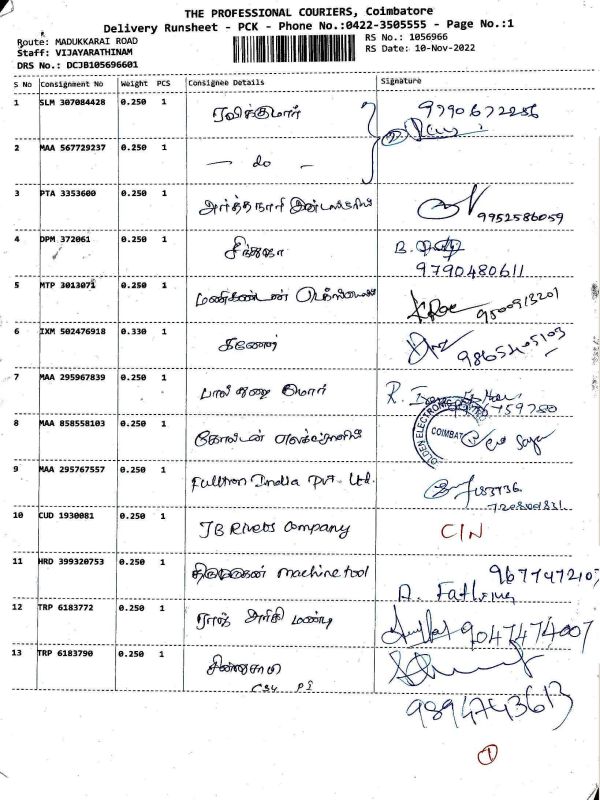 THE PROFESSIONAL COURIERS, Coimbatore
Delivery Runsheet - PCK - Phone No.:0422-3505555 - Page No.:1
Route: MADUKKARAI ROAD
Staff: VIJAYARATHINAM
DRS No.: DCJB105696601
RS No.: 1056966
RS Date: 10-Nov-2022
S No Consignment No Weight PCS Consignee Details Signature
1 SLM 307084428 0.250 1 ரவிக்குமார் 9790672286
2 MAA 567729237 0.250 1 - do -
3 PTA 3353600 0.250 1 9952586059
4 DPM 372061 0.250 1 B.
9790480611
5 MTP 3013071 0.250 1 மணிகண்டன் 9500913201
6 IXM 502476918 0.330 1 கணேஷ்
7 MAA 295967839 0.250 1 R.
8 MAA 858558103 0.250 1 கோல்டன் COIMBAT
9 MAA 295767557 0.250 1 Fulltron India Pvt. Ltd.
10 CUD 1930081 0.250 1 JB Rivets Company C/N
11 HRD 399320753 0.250 1 machine tool 9677472107
A. Fathima
12 TRP 6183772 0.250 1 ராஜ் மண்டி 9047474007
13 TRP 6183790 0.250 1 சின்னுசாமி
9894743613
1